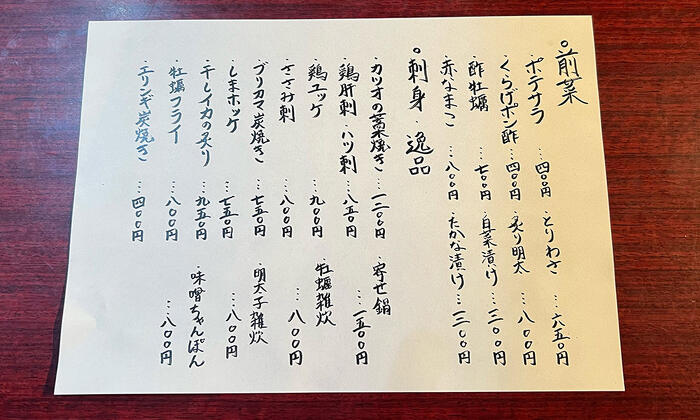 ○前菜
・ポテサラ …四〇〇円
・くらげポン酢…四〇〇円
・酢牡蠣 …七〇〇円
・赤なまこ …八〇〇円
・とりわさ …六五〇円
・炙り明太 …八〇〇円
・白菜漬け …三〇〇円
・たかな漬け…三〇〇円
○刺身・逸品
・カツオの藁焼き…一二〇〇円
・鶏肝刺・ハツ刺 …八五〇円
・鶏ユッケ …九〇〇円
・ささみ刺 …八〇〇円
・ブリカマ炭焼き…七五〇円
・しまホッケ …七五〇円
・干しイカの炙り …九五〇円
・牡蠣フライ …八〇〇円
・エリンギ炭焼き …四〇〇円
・寄せ鍋 …一五〇〇円
・牡蠣雑炊 …八〇〇円
・明太子雑炊 …八〇〇円
・味噌ちゃんぽん …八〇〇円